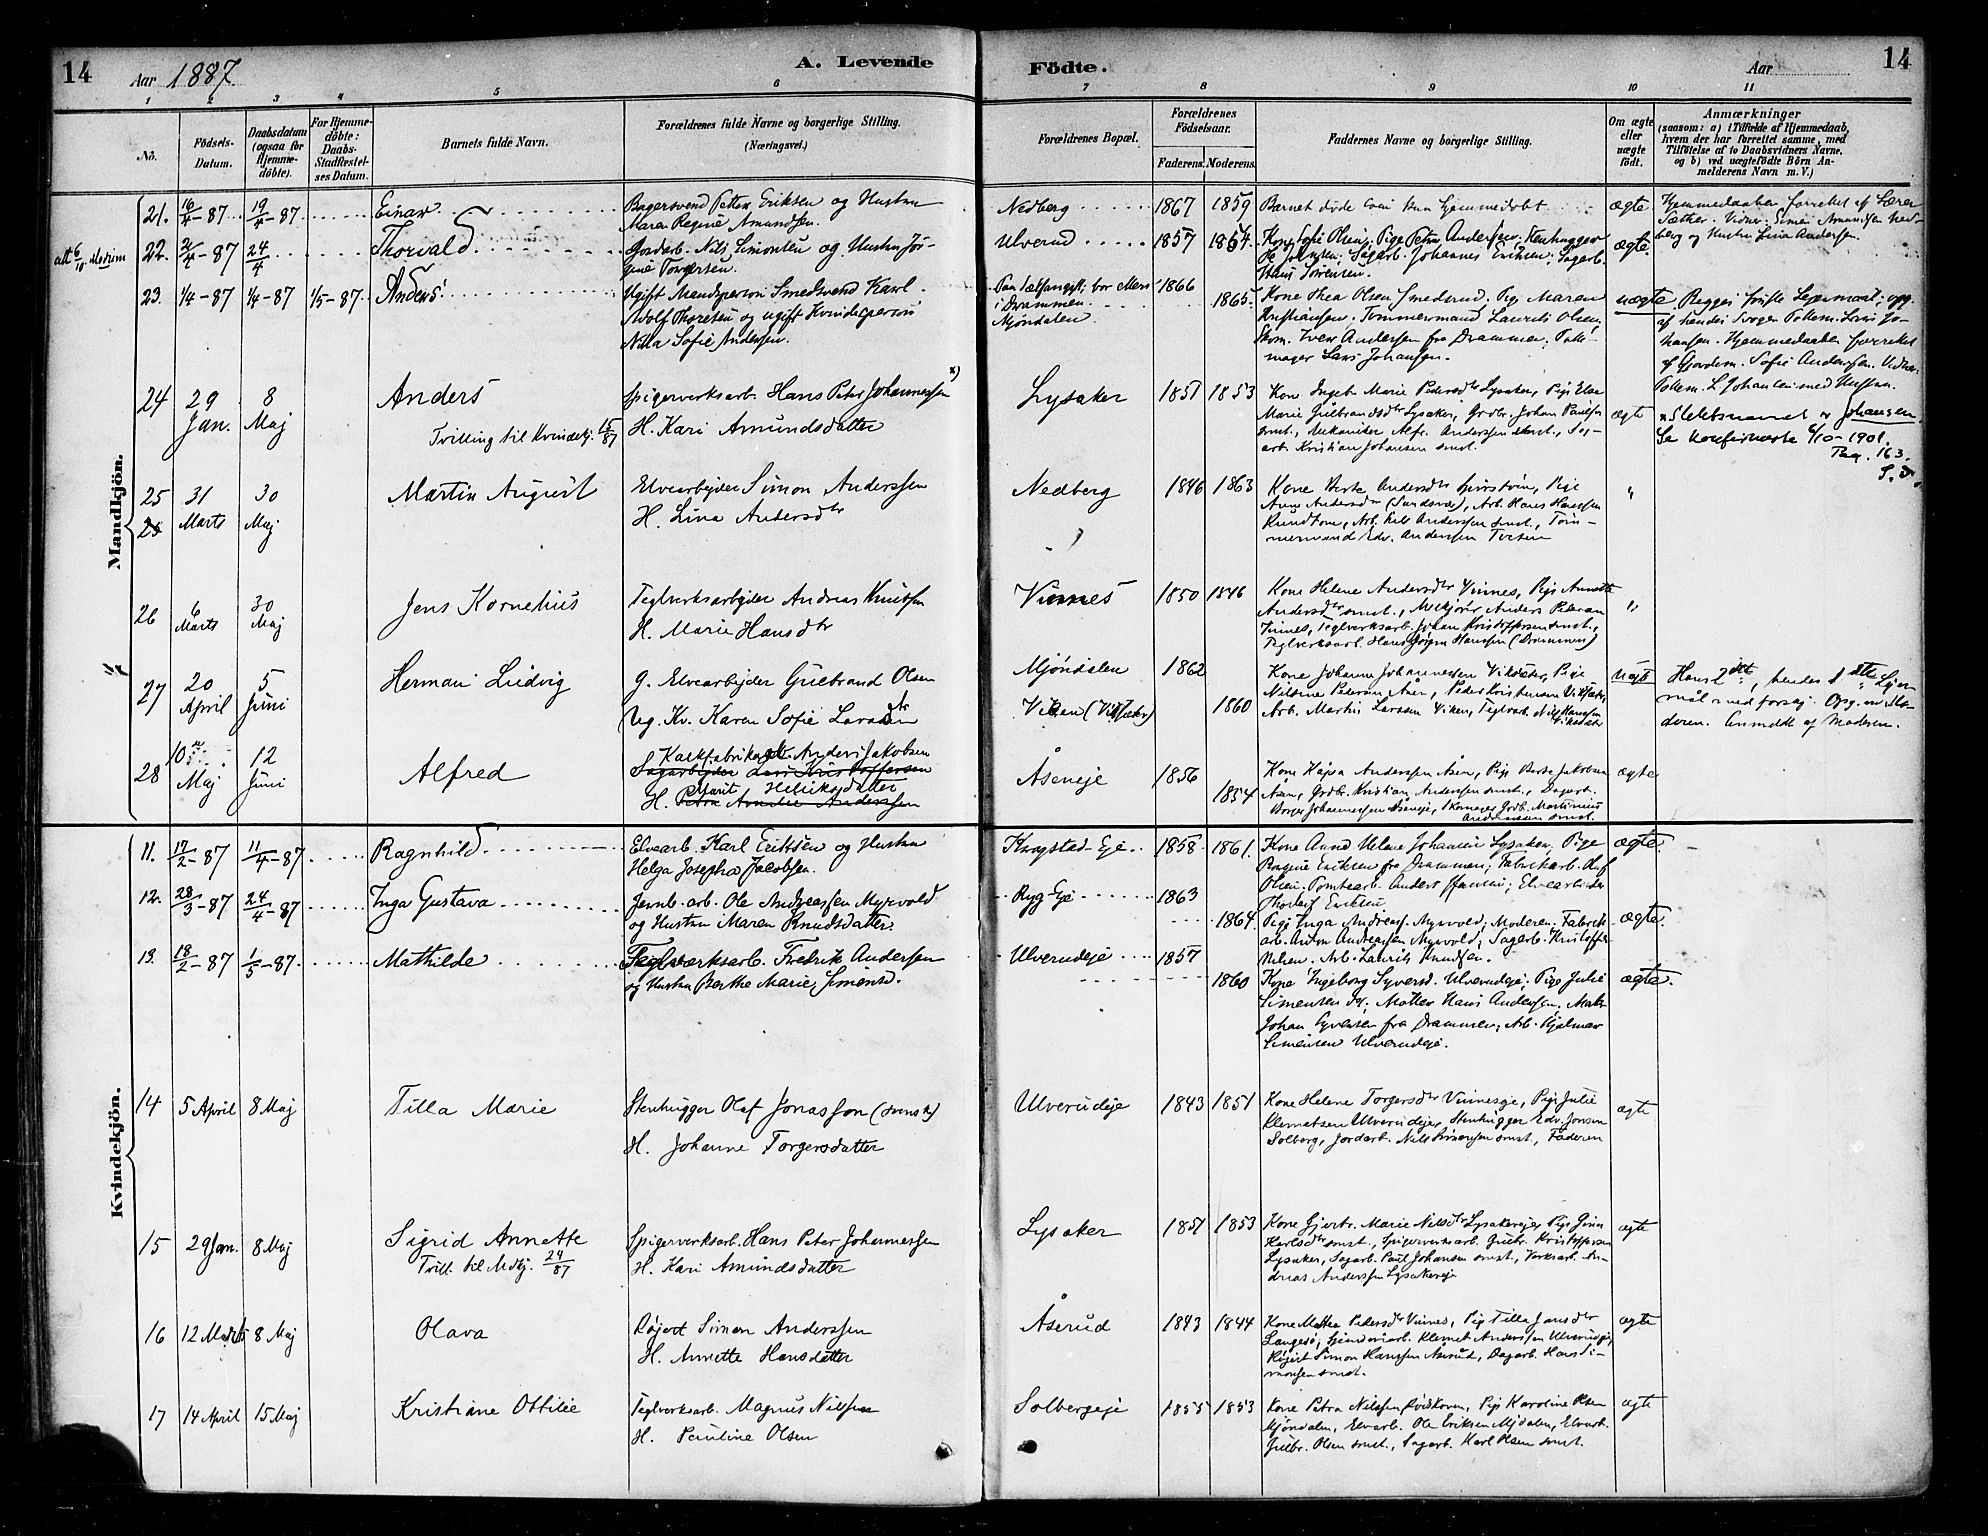 14 Aar 1887. A. Levende
Födte. Aar 14
1 2 3 4 5 6 7 8 9 10 11
No.
Födsels-
Datum.
Daabsdatum
(ogsaa for
Hjemme-
döbte).
For Hjemme-
döbte:
Daabs-
Stadfæstel-
ses Datum.
Barnets fulde Navn.
Forældrenes fulde Navne og borgerlige Stilling.
(Næringsvei.)
Forældrenes Bopæl.
Forældrenes
Födselsaar.
Faderens. Moderens.
Faddernes Navne og borgerlige Stilling.
Om ægte
eller
uægte
födt.
Anmærkninger
(saasom: a) i Tilfælde af Hjemmedaab,
hvem der har forrettet samme, med
Tilföielse af to Daabsvidners Navne,
og b) ved uægtefödte Börn An-
melderens Navn m. V.)
Mandkjön.
21. 16/4-87 19/4-87 Einar
Bagersvend Petter Eriksen og Hustru
Maren Regine Amundsen.
Nedberg 1867 1859 Barnet døde hjemmedøbt ægte
Hjemmedaaben forrettet af Lærer
Sæther. Vidner: Simen Amundsen Ned-
berg og Hustru Lina Andersen.
22. -87 24/4 Thorvald
Jordarb. Nils Simonsen og Hustru Jør-
gine Torgersen.
Ulverud 1857 1864. Kone Sofie Olsen, Pige Petra Andersen, Stenhugger
Sagarb. Johannes Eriksen, Sagarb.
Hans Sørensen.
ægte.
23. 1/4-87 1/4-87 1/5-87 Anders
Ugift Mandsperson Smedsvend Karl
Adolf Thoresen og ugift Kvindeperson
Sofie Andersen.
i Drammen
Mjøndalen
1866 1865.
Kone Thea Olsen Smedsrud. Pige Maren
Kristiansen. Tømmermand Laurits Olsen,
Skom. Iver Andersen fra Drammen, Potte-
mager Lars Johansen.
uægte
Begges første Leiermaal; opg.
af hendes Svoger Pottem. Lars Jo-
hansen. Hjemmedaaben forrettet
af Gjordem. Sofie Andersen. Vidner
Pottem. L. Johansen med Hustru.
24 29
Jan.
8
Maj
Anders
Tvilling til Kvindekj. 15/87
Spigerverksarb. Hans Peter Johannessen x)
H. Kari Amundsdatter
Lysaker 1851 1853
Kone Ingeb. Marie Pedersdtr Lysaker, Pige Else
Marie Gulbrandsdtr Lysaker, Grdbr. Johan Paulsen
smst., Mekaniker Anderssen smst., Sag-
arb. Kristian Johansen smst.
ægte
x Slektsnavnet er Johansen.
Se Konfirmerte 6/10-1901.
Pag. 163.
25 31
Marts
30
Maj
Martin August
Elvearbejder Simon Anderssen
H. Lina Andersdtr
Nedberg 1846 1863
Kone Berte Andersdtr Pige
Anne Andersdtr Arb. Hans Hanssen
Arb. Anderssen smst., Tøm-
mermand Edv. Anderssen
"
26 6
Marts
30
Maj
Jens Kornelius
Teglverksarbejder Andreas Knutsen
H. Marie Hansdtr
Vinnes 1850 1846
Kone Helene Andersdtr Vinnes, Pige Annette
Andersdtr smst., Anders
Vinnes, Teglverksarb. Johan Kristoffersen smst.,
Teglverksarb. Hans Jørgen Hanssen (Drammen)
"
27 20
April
5
Juni
Herman Ludvig
G. Elvearbejder Gulbrand Olsen
Ug. Kv. Karen Sofie Larsdtr
Mjøndalen 1862
Viken 1860
Kone Johanne Johannessen Pige
Pedersen Åsen, Peder Kristensen
Arb. Martin Larssen Viken, Teglvarb. Nils Hanssen
uægte
Hans 2det, hendes 1ste Lejer-
mål med forsej. Opg. av Mo-
deren. Anmeldt af Moderen.
28 10
Maj
12
Juni
Alfred
Kalkfabrikarb. Anders Jakobsen
Sagarbejder Lars Kristoffersen
Marit Henriksdatter
H. Petra Amalie Anderssen
Åseneje 1856 1854
Kone Kajsa Anderssen Åsen, Pige Berte Jakobsen
Åsen, Grdb. Kristian Anderssen smst., Dagarb.
Borger Johannessen Åseneje, Skomager Grdb. Martinius
Anderssen smst.
ægte
Kvindekjön.
11. 17/2-87 11/4-87 Ragnhild
Elvearb. Karl Eriksen og Hustru
Helga Josepha Jacobsen.
Krogstad-Eje 1858 1861.
Kone Anne Helene Johansen Lysaker, Pige
Ragna Eriksen fra Drammen, Fabrikarb. Olaf
Olsen; Tomtearb. Anders Hansen; Elvearbeider
Thorleif Eriksen
ægte.
12. 28/3-87 24/4-87 Inga Gustava
Jernb. arb. Ole Andreassen Myrvold
og Hustru Maren Knudsdatter.
Ryg-Eje 1863 1864.
Pige Inga Andreas. Myrvold; Moderen, Fabrik-
arb. Anton Andreassen Myrvold; Sagarb. Kristoffer
Nilsen. Arb. Laurits Knudsen.
ægte.
13. 18/2-87 1/5-87. Mathilde
Teglværksarb. Fredrik Andersen
og Hustru Berthe Marie Simensd.
Ulverudeje 1857 1860
Kone Ingeborg Syversd. Ulverudeje, Pige Julie
Simensen Møller Hans Andersen, Maler
Johan Syversen fra Drammen; Arb. Hjalmar
Simensen Ulverudeje.
ægte.
14 5 April 8 Maj Tilla Marie
Stenhugger Olaf Jonasson (svensk)
H. Johanne Torgersdatter
Ulverudeje 1843 1851
Kone Helene Torgersdtr Vinneseje, Pige Julie
Klemetsen Ulverudeje, Stenhugger Edv. Jonsen
Solberg, Jordarb. Nils smst., Faderen
ægte
15 29 Jan. 8 Maj Sigrid Annette
Tvill. til Mdkj. 24/87
Spigerverksarb. Hans Peter Johannessen
H. Kari Amundsdatter
Lysaker 1851 1853
Kone Gjertr. Marie Nilsdtr Lysakereje, Pige Gina
Karlsdtr smst., Spigerverksarb. Gulbr. Kristoffersen
Lysaker, Sagarb. Paul Johansen smst., Verksarb. An-
dreas Anderssen Lysakereje
ægte
16 12 Marts 8 Maj Olava
Røjert Simon Anderssen
H. Annette Hansdatter
Åserud 1843 1844
Kone Pedersdtr Vinnes, Pige Tilla Jansdtr
Klemet Anderssen Ulverudeje,
Røjert Simon Hanssen Åserud, Dagarb. Hans Si-
monsen smst.
ægte
17 14 April 15 Maj Kristiane Ottilie
Teglverksarb. Magnus Nilssen
H. Pauline Olsen
Solbergeje 1855 1853
Kone Petra Nilssen Pige Karoline Olsen
Mjøndalen, Elvarb. Ole Eriksen Mjdalen, Elvearb.
Gulbr. Olsen smst., Sagarb. Karl Olsen smst.
ægte